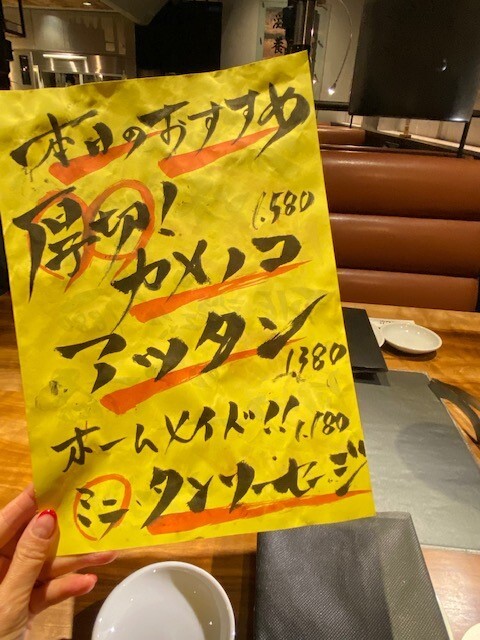 本日のおすすめ
厚切!
1.580
カメノコ
アツタン
1.380
ホームメイド!!
1.180
ミニ タンソーセージ